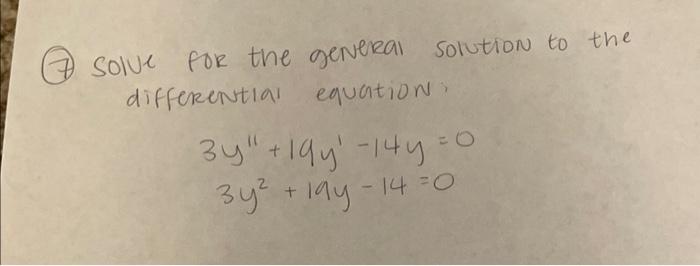 ⑦ solve for the general solution to the
differential equation:
3y" + 19y' - 14y = 0
3y² + 19y - 14 = 0